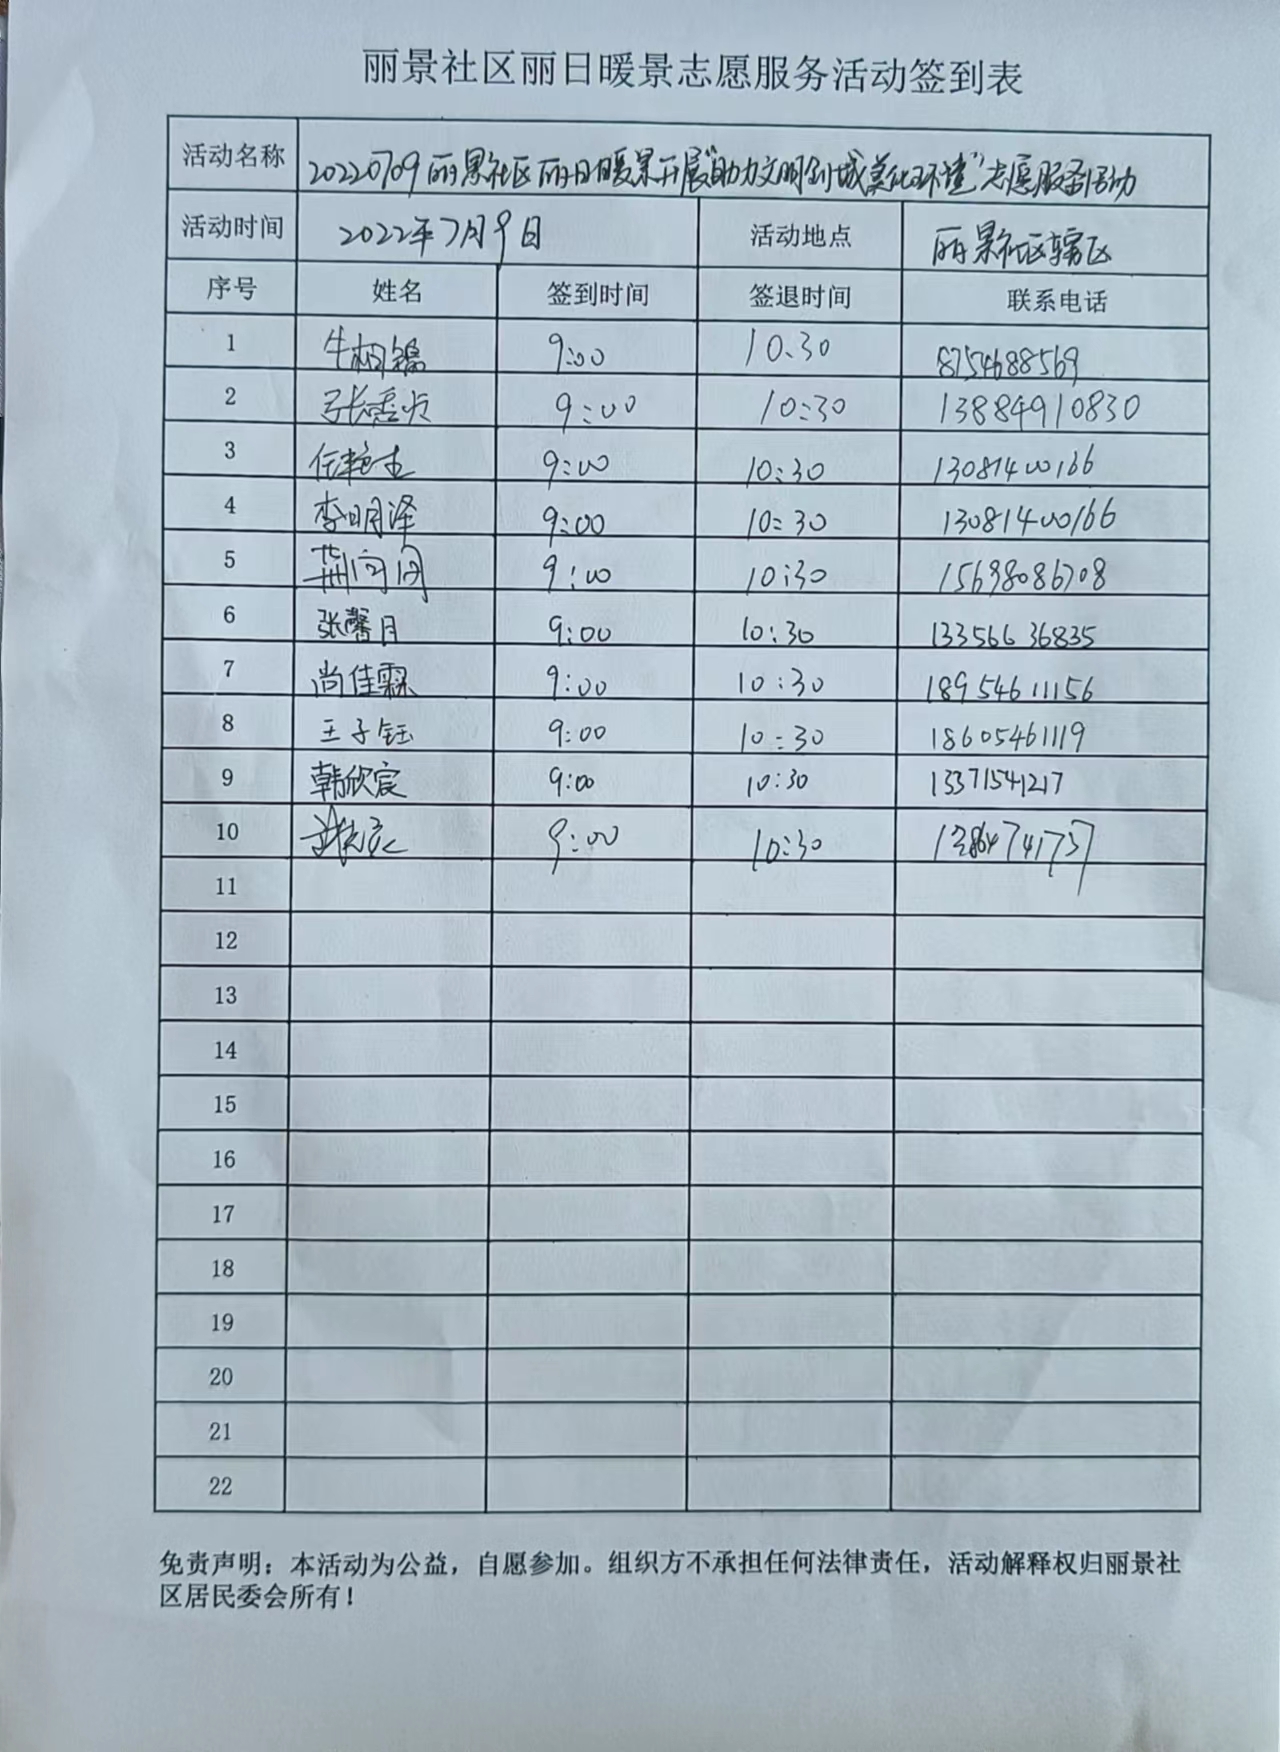 丽景社区丽日暖景志愿服务活动签到表
活动名称 20220709丽景社区丽日暖景开展"助力文明创城美化环境"志愿服务活动
活动时间 2022年7月9日 活动地点 丽景社区辖区
序号 姓名 签到时间 签退时间 联系电话
1 牛 9:00 10:30 8754688569
2 张 9:00 10:30 13884910830
3 任 9:00 10:30 13081400166
4 李明泽 9:00 10:30 13081400166
5 荆 9:00 10:30 15698086708
6 张馨月 9:00 10:30 13356636835
7 尚佳霖 9:00 10:30 18954611156
8 王子钰 9:00 10:30 18605461119
9 韩欣宸 9:00 10:30 13371541217
10 9:00 10:30
11
12
13
14
15
16
17
18
19
20
21
22
免责声明：本活动为公益，自愿参加。组织方不承担任何法律责任，活动解释权归丽景社
区居民委会所有！